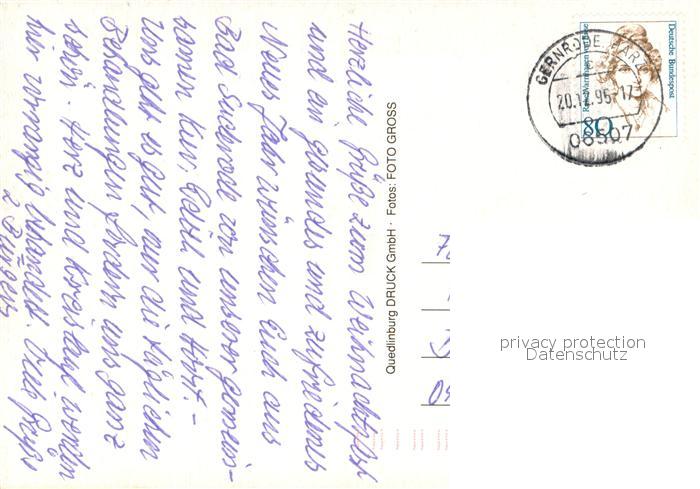 Herzliche Grüße zum Weihnachtsfest
und ein gesundes und zufriedenes
Neues Jahr wünschen Euch aus
Bad Suderode von unserer gemein-
samen Kur. Edith und
Uns geht es gut, aus die täglichen
Behandlungen uns ganz
schön. Herz und Kreislauf werden
hier Liebe Grüße
Quedlinburg DRUCK GmbH · Fotos: FOTO GROSS
GERNRODE, HARZ
20.12.95-17
06507
Deutsche Bundespost
Rahel Varnhagen von Ense
80
privacy protection
Datenschutz